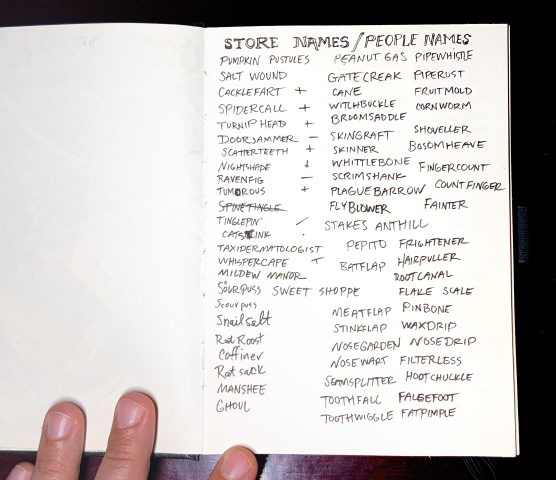 STORE NAMES/PEOPLE NAMES
PUMPKIN PUSTULES
SALT WOUND
CACKLEFART +
SPIDERCALL +
TURNIPHEAD +
DOORJAMMER -
SCATTERTEETH +
NIGHTSHADE +
RAVENFIG -
TUMOROUS +
SPINETINGLE
TINGLEPIN /
CATSINK .
TAXIDERMATOLOGIST
WHISPERCAPE +
MILDEW MANOR
SOURPUSS SWEET SHOPPE
Scourpuss
Snailsalt
Rat Roost
Coffiner
Rat sack
MANSHEE
GHOUL
PEANUT GAS PIPEWHISTLE
GATECREAK PIPERUST
CANE FRUITMOLD
WITCHBUCKLE CORNWORM
BROOMSADDLE
SKINGRAFT SHOVELLER
SKINNER BOSOMHEAVE
WHITTLEBONE FINGERCOUNT
SCRIMSHANK
PLAGUEBARROW COUNTFINGER
FLYBLOWER FAINTER
STAKES ANTHILL
PEPITO FRIGHTENER
BATFLAP HAIRPULLER
ROOTCANAL
FLAKE SCALE
MEATFLAP PINBONE
STINKFLAP WAXDRIP
NOSEGARDEN NOSEDRIP
NOSEWART FILTERLESS
SEAMSPLITTER HOOTCHUCKLE
TOOTHFALL FALSEFOOT
TOOTHWIGGLE FATPIMPLE